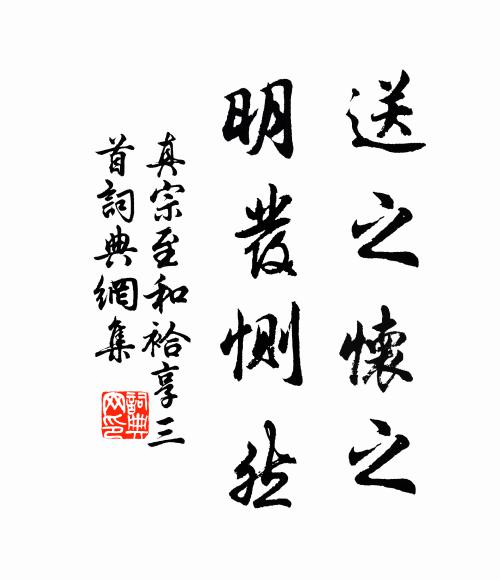 送之懷之
明發惻然
真宗至和祫享三
首詞典網集
詞典
网印